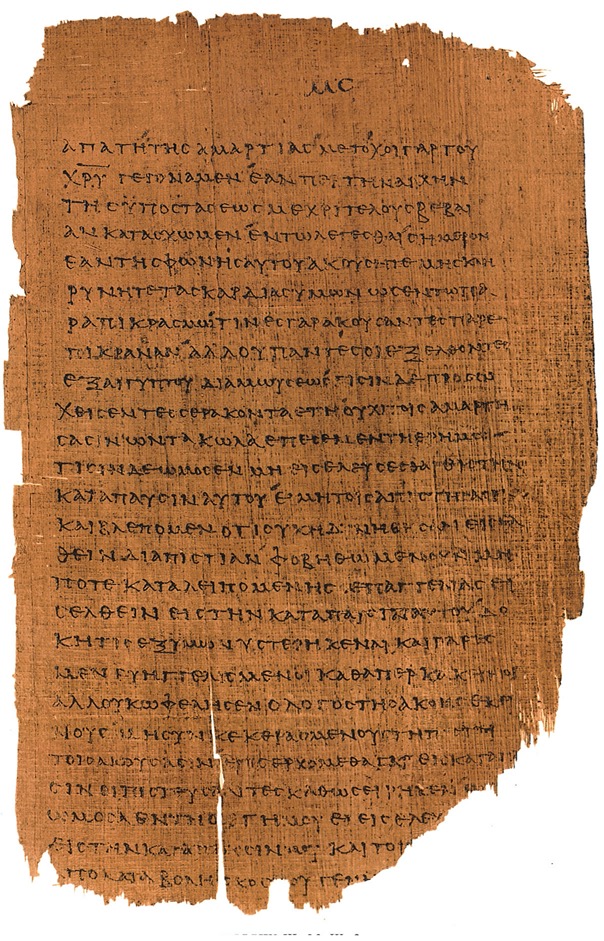 μϛ
απατητησαμαρτιασμετοχοιγαρτου
χρυγεγοναμενεανπερτηναρχην
τησυποστασεωσμεχριτελουσβεβαι
ανκατασχωμενεντωλεγεσθαισημερον
εαντησφωνησαυτουακουσητεμησκλη
ρυνητετασκαρδιασυμωνωσεντωπα
ραπικρασμωτινεσγαρακουσαντεσπαρε
πικραναναλλουπαντεσοιεξελθοντεσ
εξαιγυπτουδιαμωυσεωστισινδεπροσω
χθεισεντεσσερακονταετηουχιτοισαμαρτη
σασινωντακωλαεπεσενεντηερημω
τισινδεωμοσενμηεισελευσεσθαιεισ την
καταπαυσιναυτουειμητοισαπιστησασιν
καιβλεπομενοτιουκηδυνηθησανεισελ
θεινδιαπιστιανφοβηθωμενουνμη
ποτεκαταλειπομενησεπαγγελιασει
σελθεινεισ τηνκαταπαυσιναυτουδο
κητισεξυμωνυστερηκεναικαιγαρεσ
μενευηγγελισμενοικαθαπερκακεινοι
αλλουκωφελησενολογοστησακοησεκει
νουσμησυνκεκερασμενουστηπιστει
τοισακουσασινεισερχομεθαγαρεισκαταπαυ
σινοιπιστευσαντεσκαθωσειρηκεν
ωμοσαεντηοργημουειεισελευ
εισ τηνκαταπαυσινμουκαιτοι
αποκαταβοληςκοσμουγενη